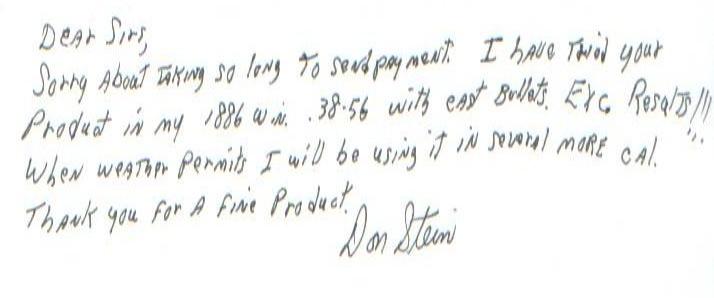 Dear Sirs,
Sorry About Taking so long To send payment. I have Tried your
Product in my 1886 Win. .38-56 with cast Bullets. Exc. Results!!!
When weather Permits I will be using it in several more cal.
Thank you for A Fine Product.
Don Stein